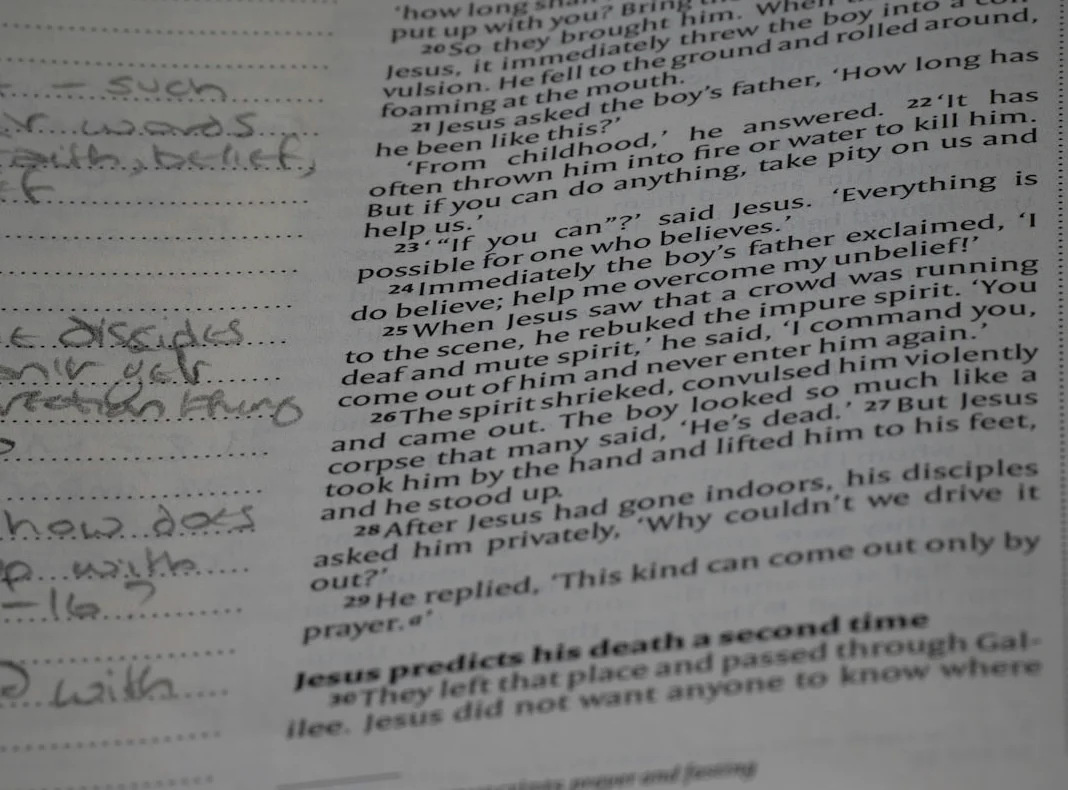 - such
words
faith, belief,
dissides
thing
how does
with
-16?
with
'how long
put up with you? Bring
20 So they brought him. When
Jesus, it immediately threw the boy into a con-
vulsion. He fell to the ground and rolled around,
foaming at the mouth.
21 Jesus asked the boy's father, 'How long has
he been like this?'
'From childhood,' he answered. 22 'It has
often thrown him into fire or water to kill him.
But if you can do anything, take pity on us and
help us.'
23 '"If you can"?' said Jesus. 'Everything is
possible for one who believes.'
24 Immediately the boy's father exclaimed, 'I
do believe; help me overcome my unbelief!'
25 When Jesus saw that a crowd was running
to the scene, he rebuked the impure spirit. 'You
deaf and mute spirit,' he said, 'I command you,
come out of him and never enter him again.'
26 The spirit shrieked, convulsed him violently
and came out. The boy looked so much like a
corpse that many said, 'He's dead.' 27 But Jesus
took him by the hand and lifted him to his feet,
and he stood up.
28 After Jesus had gone indoors, his disciples
asked him privately, 'Why couldn't we drive it
out?'
29 He replied, 'This kind can come out only by
prayer.a'
Jesus predicts his death a second time
30 They left that place and passed through Gal-
ilee. Jesus did not want anyone to know where
prayer and fasting